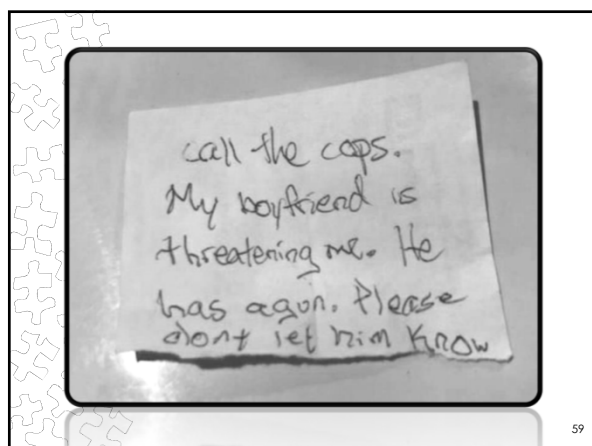 call the cops.
My boyfriend is
threatening me. He
has a gun. Please
dont let him know
59